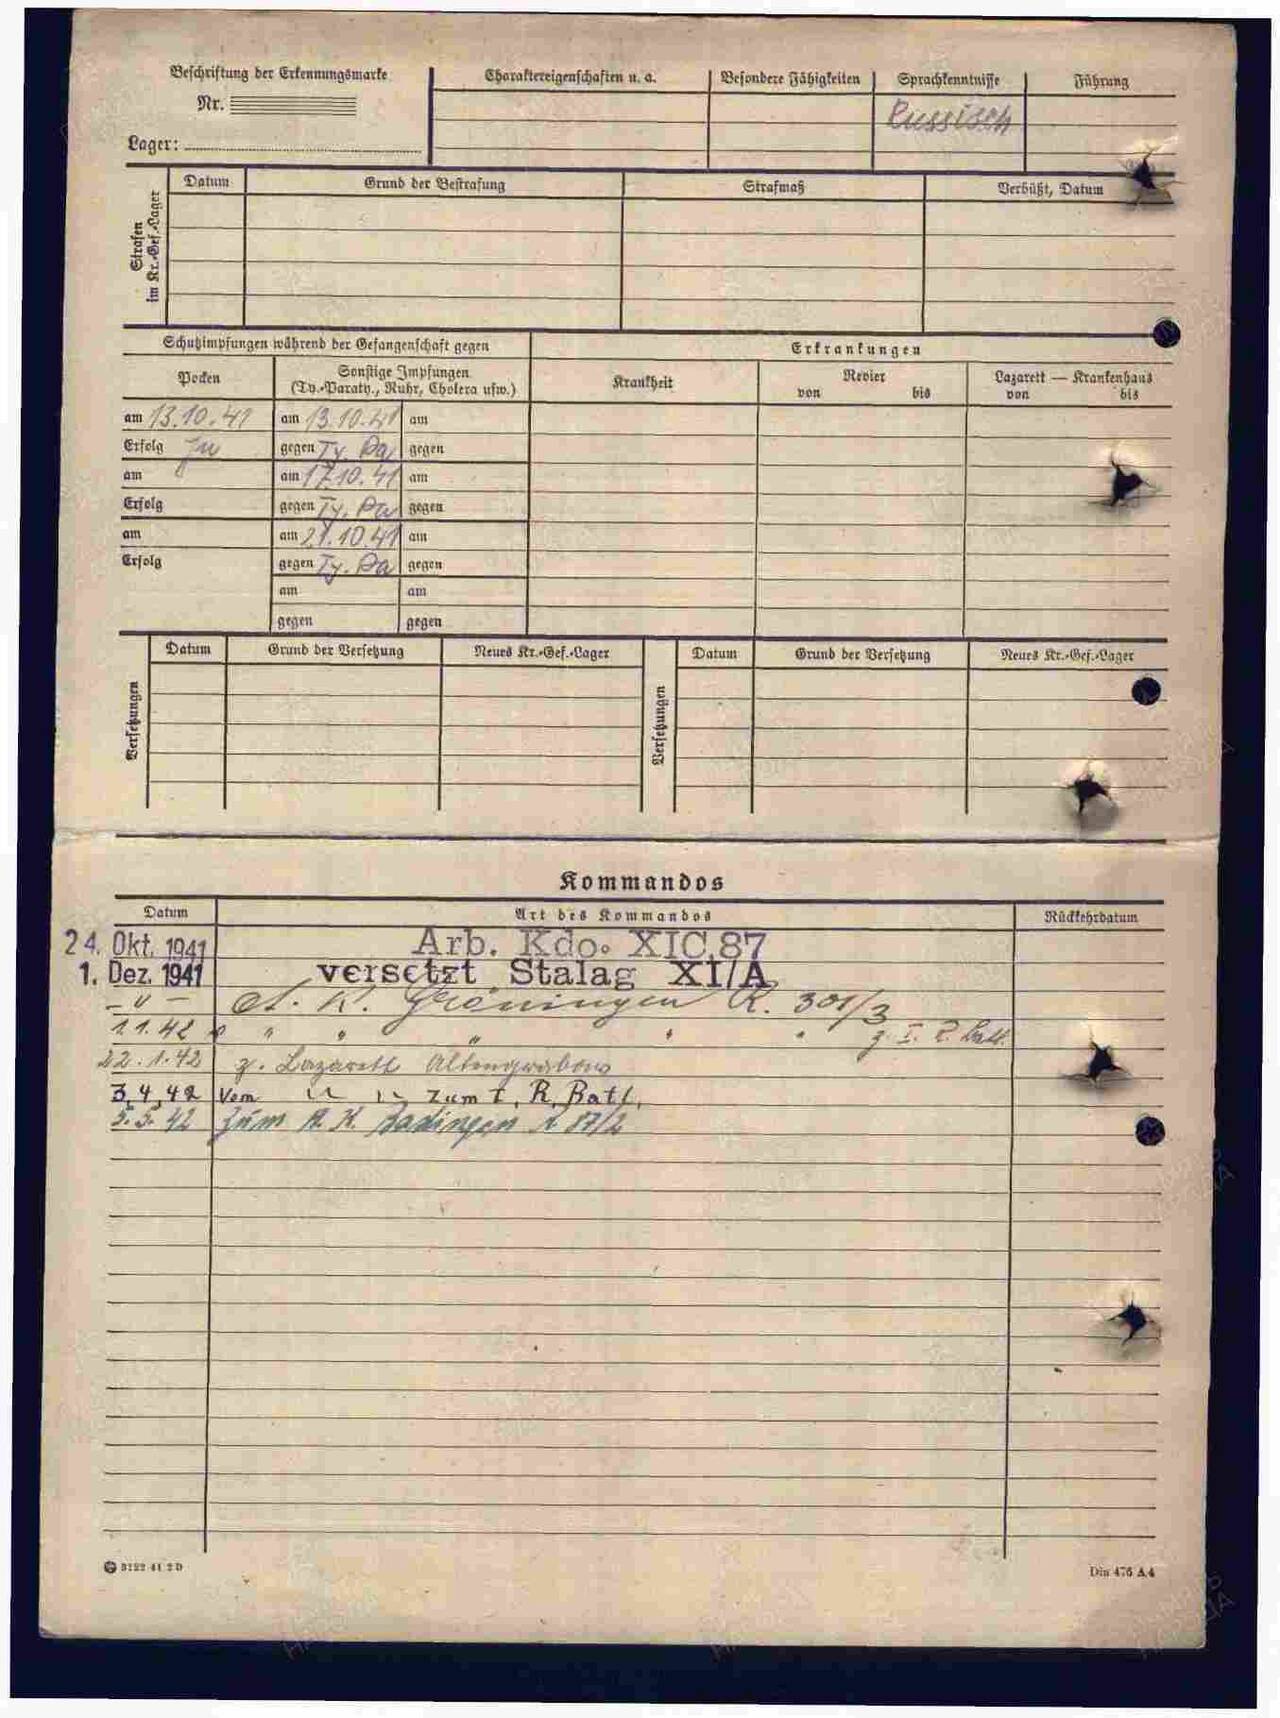 Beschriftung der Erkennungsmarke
Nr.
Lager:
Charaktereigenschaften u. a.
Besondere Fähigkeiten
Sprachkenntnisse
Führung
Russisch
Strafen
im Kr.-Gef.-Lager
Datum
Grund der Bestrafung
Strafmaß
Verbüßt, Datum
Schutzimpfungen während der Gefangenschaft gegen
Erkrankungen
Pocken
Sonstige Impfungen
(Ty.-Paraty., Ruhr, Cholera usw.)
Krankheit
Revier
von bis
Lazarett — Krankenhaus
von bis
am 13.10.41 am 13.10.41 am
Erfolg gegen Ty. Pa gegen
am am 17.10.41 am
Erfolg gegen Ty. Pa gegen
am am 21.10.41 am
Erfolg gegen Ty. Pa gegen
am am
gegen gegen
Versetzungen
Datum Grund der Versetzung Neues Kr.-Gef.-Lager
Versetzungen
Datum Grund der Versetzung Neues Kr.-Gef.-Lager
Kommandos
Datum Art des Kommandos Rückkehrdatum
24. Okt. 1941 Arb. Kdo. XIC 87
1. Dez. 1941 versetzt Stalag XI/A
– " – A. K. Gröningen R. 301/3
1.1.42 " " " " " z. I. R. Batl.
22.1.42 z. Lazarett Altengrabow
3.4.42 Vom " " zum I. R. Batl.
5.5.42 Zum A. K. R 87/2
3122 41 2 D
Din 476 A 4